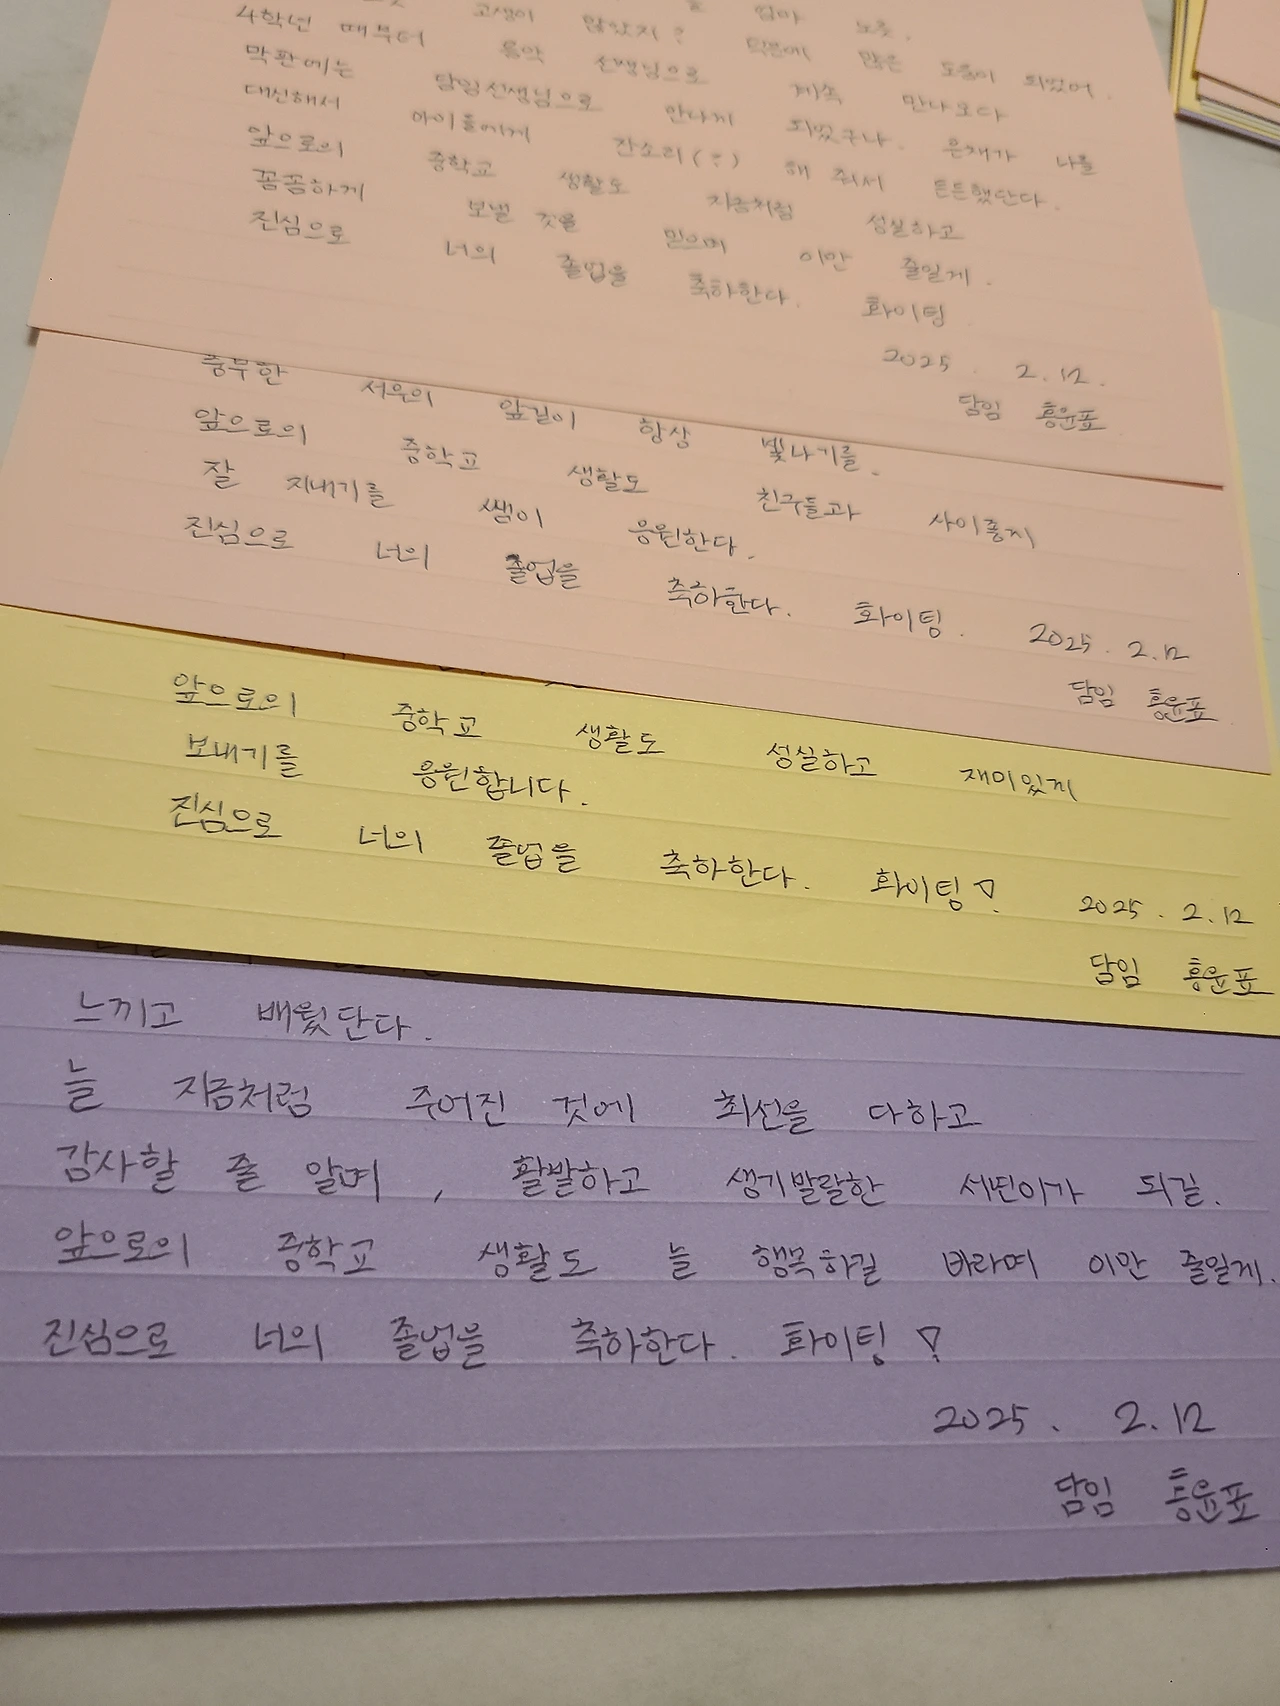 고생이 많았지? 덕분에 많은 도움이 되었어.
4학년 때부터 음악 선생님으로 계속 만나오다
막판에는 담임선생님으로 만나게 되었구나. 은재가 나를
대신해서 아이들에게 잔소리(?) 해 줘서 든든했단다.
앞으로의 중학교 생활도 지금처럼 성실하고
꼼꼼하게 보낼 것을 믿으며 이만 줄일게.
진심으로 너의 졸업을 축하한다. 화이팅
2025. 2.12.
담임 홍윤표
충무한 서운의 앞길이 항상 빛나기를.
앞으로의 중학교 생활도 친구들과 사이좋게
잘 지내기를 쌤이 응원한다.
진심으로 너의 졸업을 축하한다. 화이팅. 2025. 2.12
담임 홍윤표
앞으로의 중학교 생활도 성실하고 재미있게
보내기를 응원합니다.
진심으로 너의 졸업을 축하한다. 화이팅! 2025. 2.12
담임 홍윤표
느끼고 배웠단다.
늘 지금처럼 주어진 것에 최선을 다하고
감사할 줄 알며, 활발하고 생기발랄한 세린이가 되길.
앞으로의 중학교 생활도 늘 행복하길 바라며 이만 줄일게.
진심으로 너의 졸업을 축하한다. 화이팅!
2025. 2.12
담임 홍윤표